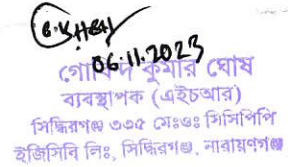 06.11.2023
গোবিন্দ কুমার ঘোষ
ব্যবস্থাপক (এইচআর)
সিদ্ধিরগঞ্জ ৩৩৫ মেঃওঃ সিসিপিপি
ইজিসিবি লিঃ, সিদ্ধিরগঞ্জ, নারায়ণগঞ্জ